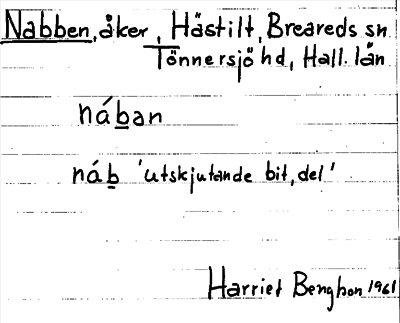 Nabben, åker, Hästilt, Breareds sn
Tönnersjö hd, Hall. län
nában
náb 'utskjutande bit, del'
Harriet 1961